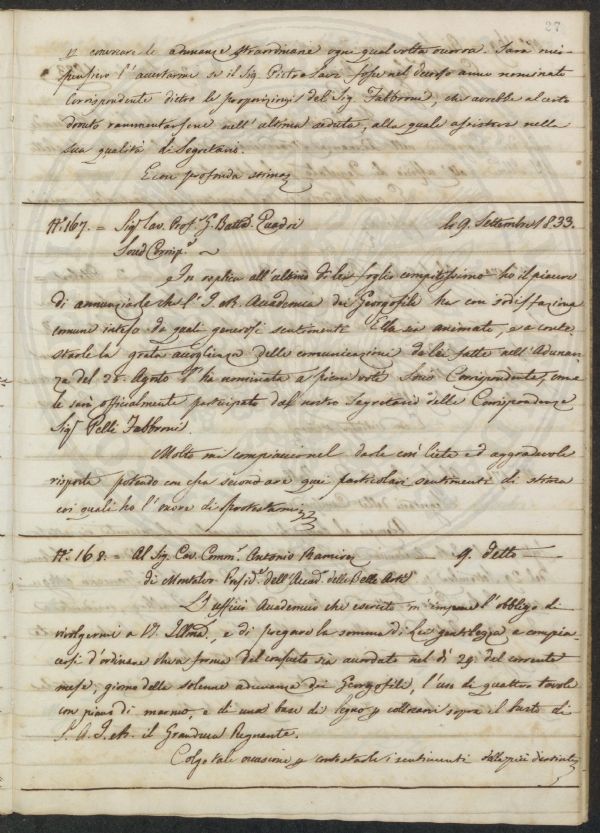 27
convocare le adunanze straordinarie ogni qual volta occorra. Sarà mio
pensiero l'accertarmi se il Sig. Pietro fosse nel decorso anno nominato
Corrispondente dietro le proposizioni del Sig. Fabbroni, che avrebbe al certo
dovuto rammentarsene nell'ultima seduta, alla quale assisteva nella
sua qualità di Segretario.
E con profonda stima
N.° 167. = Sig.r Cav. Prof. G. Batta. Quadri lo 9. Settembre 1833.
Socio Corrisp.e
In replica all'ultimo di lei foglio compitissimo ho il piacere
di annunziarle che l'I. e R. Accademia dei Georgofili ha con sodisfazione
comune inteso da quali generosi sentimenti Ella sia animata, e a conte
starle la grata accoglienza delle comunicazioni da lei fatte nell'Adunan
za del 25. Agosto l'ha nominata a pieni voti Socio Corrispondente, come
le sarà officialmente partecipato dal nostro Segretario delle Corrispondenze
Sig.r Pelli Fabbroni.
Molto mi compiaccio nel darle così lieta ed aggradevole
risposta potendo con essa secondare quei particolari sentimenti di stima
coi quali ho l'onore di protestarmi
N.° 168. = Al Sig. Cav. Comm.e Antonio Ramirez 9. detto
di Montalvo Presid.e dell'Accad. delle Belle Arti
L'ufficio Accademico che esercito m'impone l'obbligo di
rivolgermi a V. S. Illma., e di pregare la somma di Lei gentilezza a compia
cersi d'ordinare che a forma del consueto sia accordato nel dì 29. del corrente
mese, giorno della solenne adunanza dei Georgofili, l'uso di quattro tavole
con piano di marmo, e di una base di legno p collocarvi sopra il busto di
S. A. I. e R. il Granduca Regnante.
Colgo tale occasione p contestarle i sentimenti della più distinta